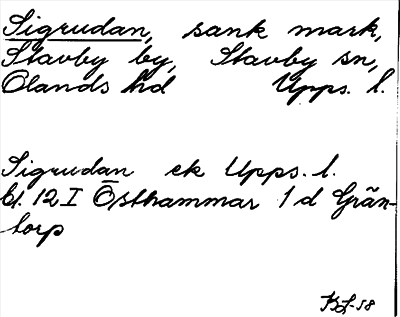 Sigrudan, sank mark,
Stavby by, Stavby sn,
Olands hd Upps. l.
Sigrudan ek Upps. l.
bl. 12 I Östhammar 1 d Grän-
torp
KJ-58